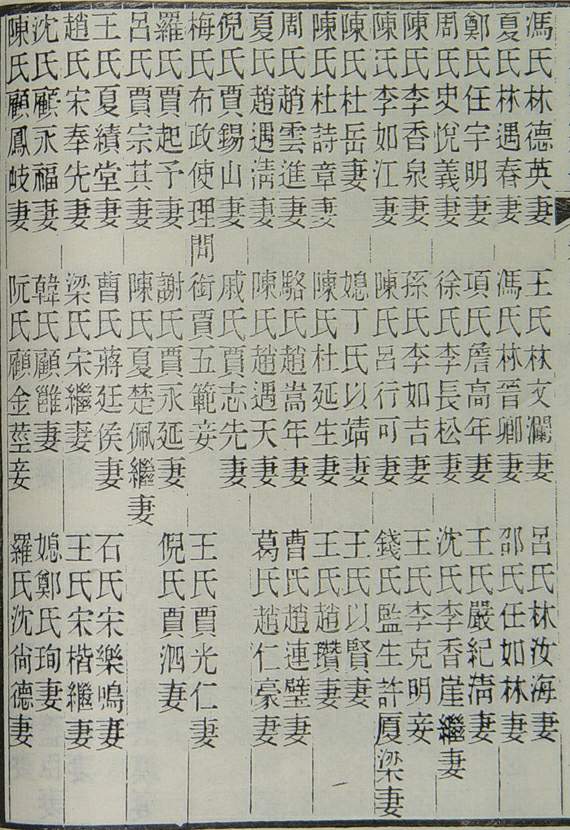 馮氏林德英妻 王氏林文瀾妻 呂氏林汝海妻
夏氏林遇春妻 馮氏林晉卿妻 邵氏任如林妻
鄭氏任宇明妻 項氏詹高年妻 王氏嚴紀淸妻
周氏史悅義妻 徐氏李長松妻 沈氏李香崖繼妻
陳氏李香泉妻 孫氏李如吉妻 王氏李克明妾
陳氏李如江妻 陳氏呂行可妻 錢氏監生許厦梁妻
陳氏杜岳妻 媳丁氏以靖妻 王氏以賢妻
陳氏杜詩章妻 陳氏杜延生妻 王氏趙瓚妻
周氏趙雲進妻 駱氏趙嵩年妻 曹氏趙連璧妻
夏氏趙遇淸妻 陳氏趙遇天妻 葛氏趙仁豪妻
倪氏賈錫山妻 戚氏賈志先妻
梅氏布政使理問 銜賈五範妾 王氏賈光仁妻
羅氏賈起予妻 謝氏賈永延妻 倪氏賈泗妻
呂氏賈宗其妻 陳氏夏楚佩繼妻
王氏夏績堂妻 曹氏蔣廷侯妻 石氏宋樂鳴妻
趙氏宋奉先妻 梁氏宋繼妻 王氏宋楷繼妻
沈氏顧永福妻 韓氏顧雝妻 媳鄭氏珣妻
陳氏顧鳳岐妻 阮氏顧金莖妾 羅氏沈尙德妻